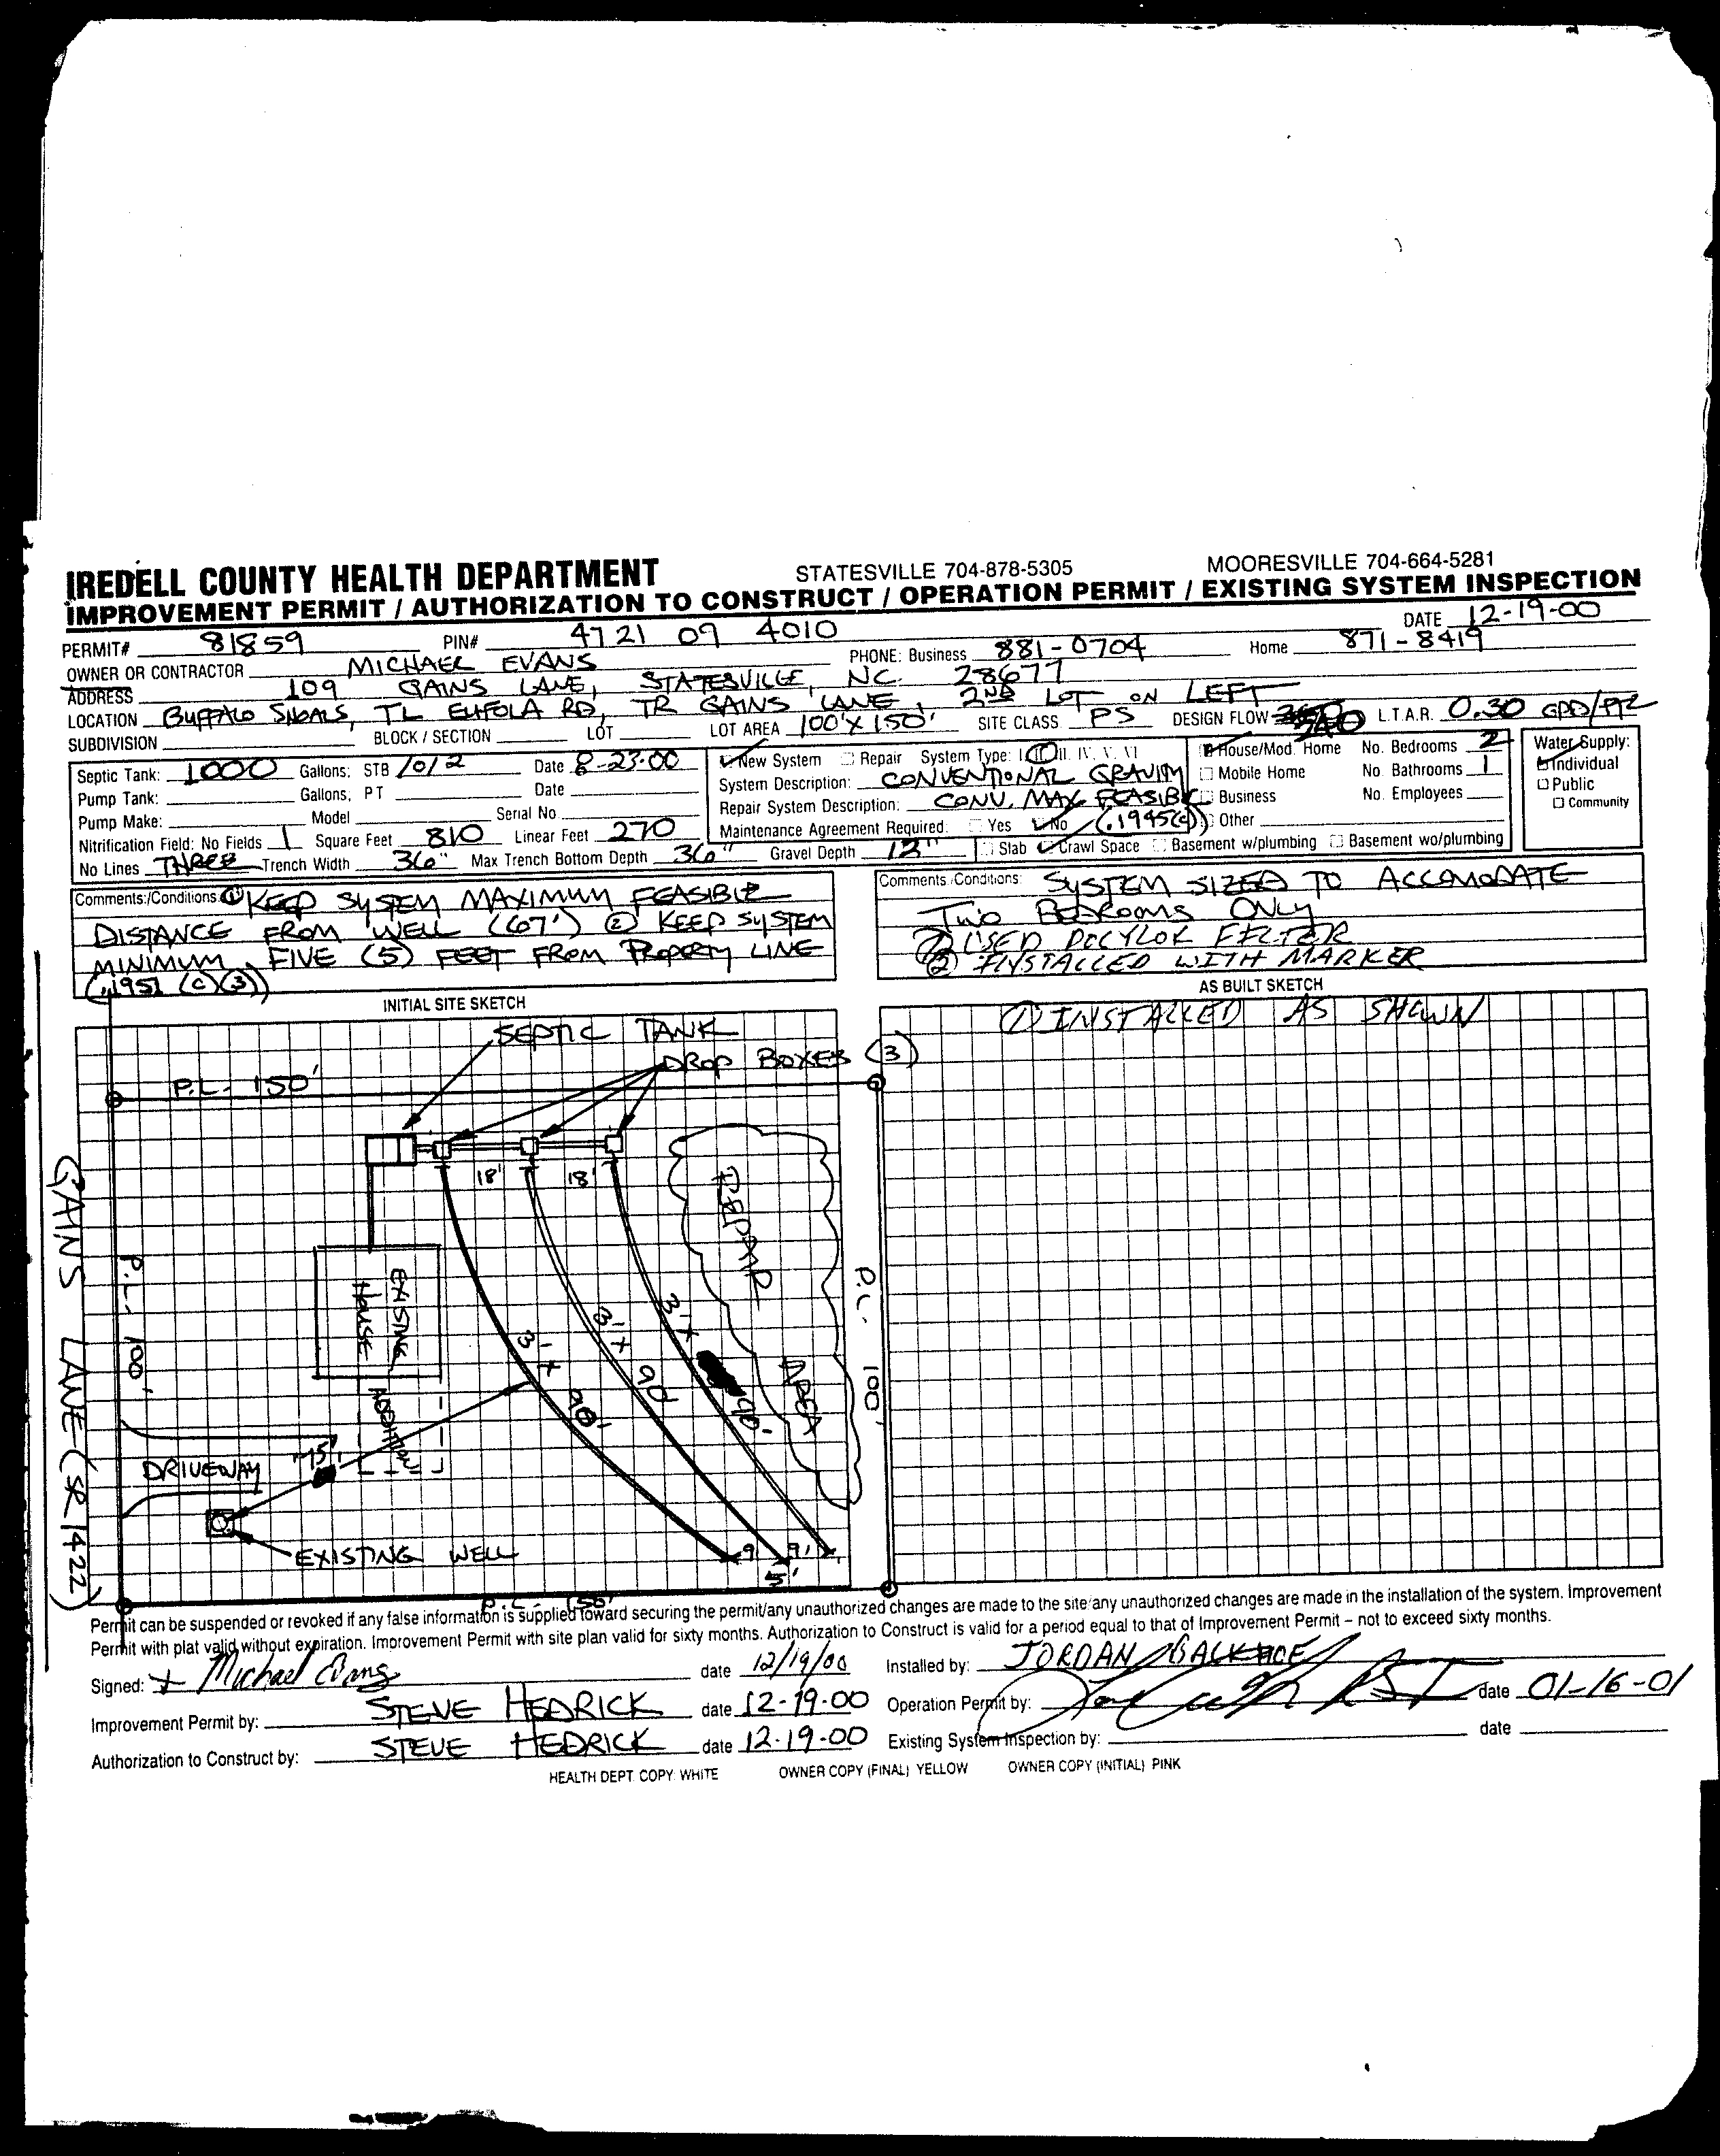 IREDELL COUNTY HEALTH DEPARTMENT STATESVILLE 704-878-5305 MOORESVILLE 704-664-5281
IMPROVEMENT PERMIT / AUTHORIZATION TO CONSTRUCT / OPERATION PERMIT / EXISTING SYSTEM INSPECTION
PERMIT# 81859 PIN# 4721 09 4010 DATE 12-19-00
OWNER OR CONTRACTOR MICHAEL EVANS PHONE: Business 881-0704 Home 871-8419
ADDRESS 109 GAINS LANE, STATESVILLE, NC. 28677
LOCATION BUFFALO SHOALS, TL EUFOLA RD, TR GAINS LANE, 2ND LOT ON LEFT
SUBDIVISION BLOCK / SECTION LOT LOT AREA 100'X150' SITE CLASS PS DESIGN FLOW L.T.A.R. 0.30 GPD/FT2
Septic Tank: 1000 Gallons: STB 1012 Date 8-23-00
Pump Tank: Gallons: PT Date
Pump Make: Model Serial No.
Nitrification Field: No Fields 1 Square Feet 810 Linear Feet 270
No Lines THREE Trench Width 36" Max Trench Bottom Depth 36" Gravel Depth 12"
New System Repair System Type: I II III. IV. V. VI
System Description: CONVENTIONAL GRAVITY
Repair System Description: CONV. MAX FEASIBLE
Maintenance Agreement Required: Yes No (.1945(c))
House/Mod. Home No. Bedrooms 2
Mobile Home No. Bathrooms 1
Business No. Employees
Other
Slab Crawl Space Basement w/plumbing Basement wo/plumbing
Water Supply:
Individual
Public
Community
Comments/Conditions: ① KEEP SYSTEM MAXIMUM FEASIBLE
DISTANCE FROM WELL (67') ② KEEP SYSTEM
MINIMUM FIVE (5) FEET FROM PROPERTY LINE
(.1951 (c)(3))
Comments/Conditions: SYSTEM SIZED TO ACCOMODATE
TWO BEDROOMS ONLY
① USED POLYLOK FILTER
② INSTALLED WITH MARKER
INITIAL SITE SKETCH
AS BUILT SKETCH
① INSTALLED AS SHOWN
SEPTIC TANK
DROP BOXES (3)
P.L. - 150'
18' 18'
REPAIR AREA
EXISTING HOUSE
ADDITION
3' X 90'
3' X 90'
3' X 90'
P.L. - 100'
P.L. - 100'
GAINS LANE (SR 1422)
DRIVEWAY
75'
EXISTING WELL
9' 9'
5'
P.L. - 150'
Permit can be suspended or revoked if any false information is supplied toward securing the permit/any unauthorized changes are made to the site/any unauthorized changes are made in the installation of the system. Improvement
Permit with plat valid without expiration. Improvement Permit with site plan valid for sixty months. Authorization to Construct is valid for a period equal to that of Improvement Permit – not to exceed sixty months.
Signed: X Michael Evans date 12/19/00 Installed by: JORDAN BACKHOE
Improvement Permit by: STEVE HEDRICK date 12-19-00 Operation Permit by: date 01-16-01
Authorization to Construct by: STEVE HEDRICK date 12-19-00 Existing System Inspection by: date
HEALTH DEPT. COPY: WHITE OWNER COPY (FINAL) YELLOW OWNER COPY (INITIAL) PINK